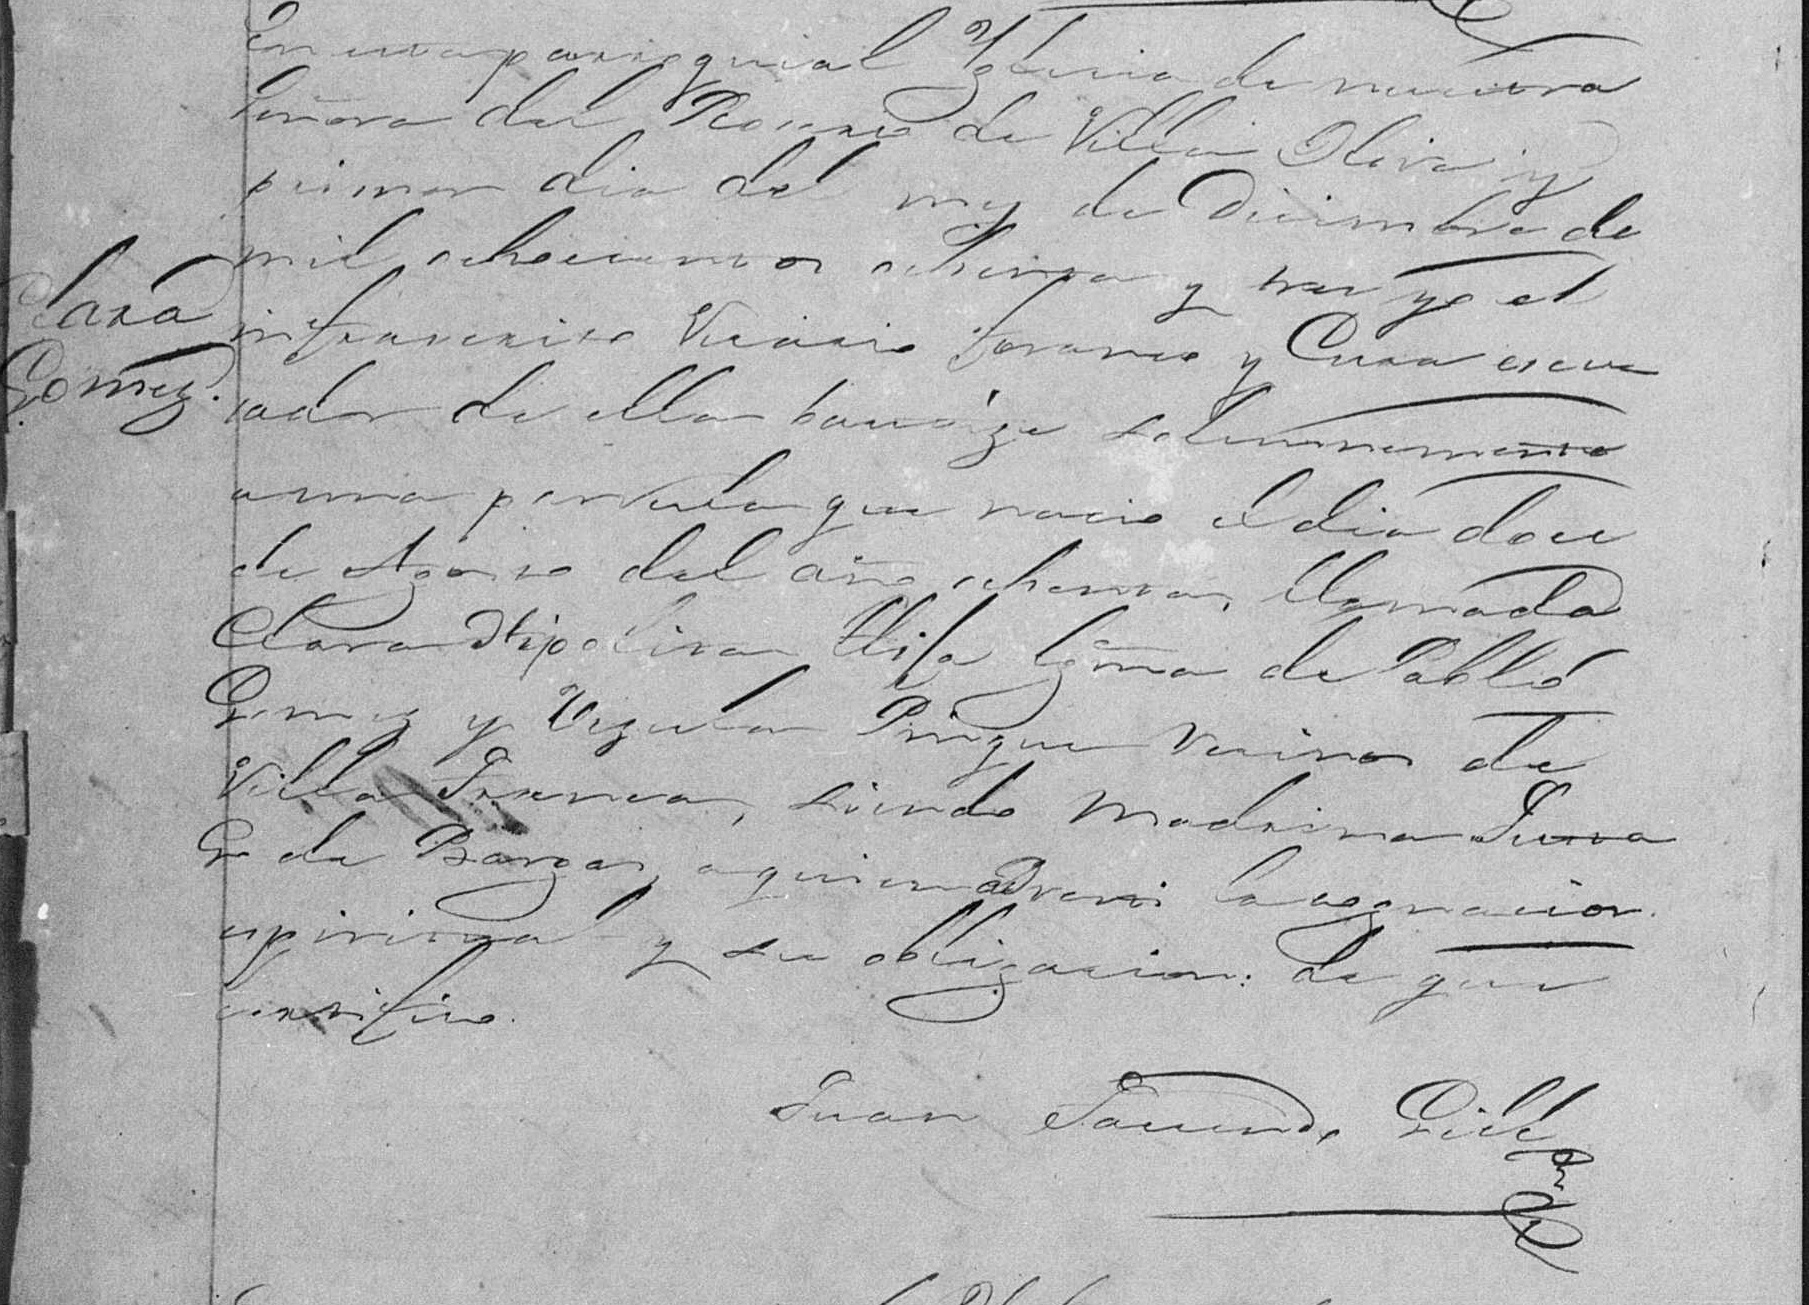 En esta parroquial Yglesia de nuestra
Señora del Rosario de Villa Oliva y
primer dia del mes de Diciembre de
mil ochocientos ochenta y tres yo el
Clara
Gomez.
infrascrito Vicario foraneo y Cura escu
sador de ella bautize solemnemente
a una parvula que nacio el dia doce
de Agosto del año ochenta, llamada
Clara Hipolita Hija lgma de Pablo
Gomez y Urzula Pringue vecinos de
Villa Franca, siendo Madrina
G. de Bargas, a quien adverti la cognacion
espiritual y su obligacion: de que
certifico.
Juan Facundo Gill